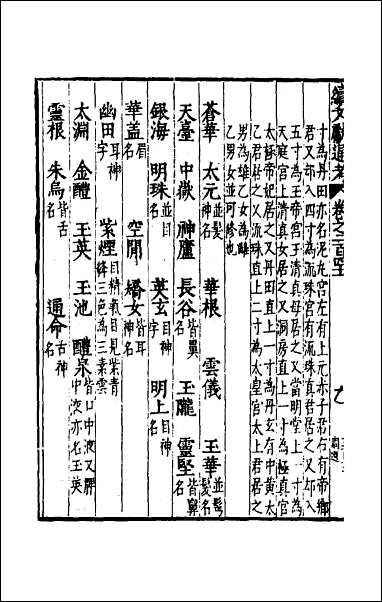 續文獻通考 卷之二百四
寸為丹田亦名泥丸宮左有上元赤子君右有帝鄉
君又却入四寸為流珠宮有流珠真君居之又却入
五寸為玉帝宮玉清真母居之又當明堂上一寸為
天庭宮上清真女居之又洞房直上一寸為極真宮
太極帝妃居之又丹田直上一寸為丹玄有中黃太
乙君居之又流珠直上一寸為太皇宮太上君居之
男為雄乙女為雌
乙男女並可修也
蒼華 太元並髮神名 華根 雲儀 玉華並髮名
天臺 中嶽 神廬 長谷皆鼻名 玉隴 靈堅皆鼻名
銀海 明珠並目名 英玄目神字 明上目神名
華蓋眉名 空閒 嬌女皆耳神名
幽田耳神字 紫煙目精氣目見紫青絳三色為三素雲
太淵 金醴 玉英 玉池 醴泉皆口中液又膠中液亦名玉英
靈根 朱鳥皆舌名 通命舌神名